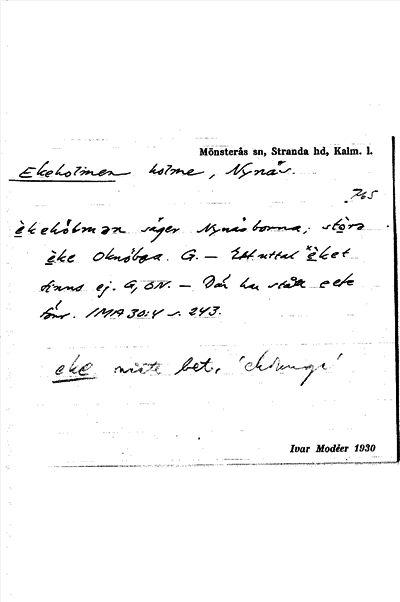 Mönsterås sn, Stranda hd, Kalm. l.
Ekeholmen holme, Nynäs.
èkehòlman säger Nynäsborna, stòra
èke Oknöboa. G. — Ett uttal *èket
finns ej. G, ÖN. — Där har stått eke
förr. IMA 30:4 s. 243.
eke måste bet.
Ivar Modéer 1930